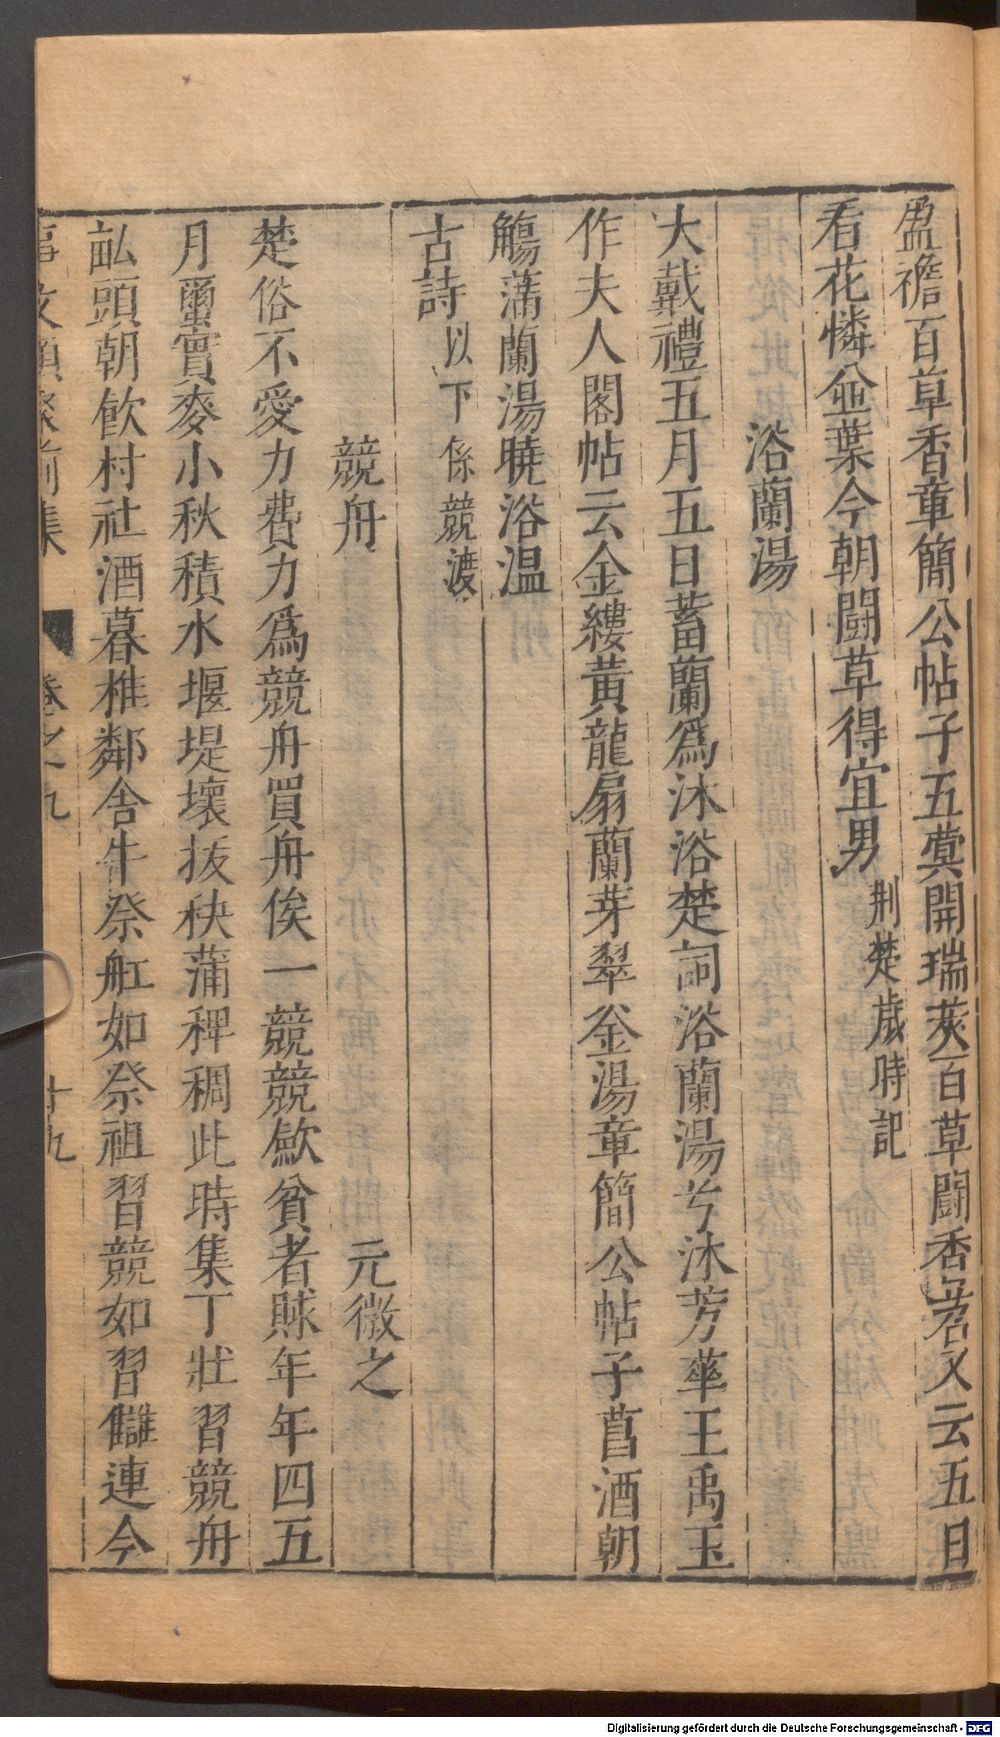 盈襜百草香章簡公帖子五蓂開瑞莢百草鬬香茗又云五日
看花憐並葉今朝鬬草得宜男荆楚歲時記
浴蘭湯
大戴禮五月五日蓄蘭爲沐浴楚詞浴蘭湯兮沐芳華王禹玉
作夫人閣帖云金縷黃龍扇蘭芽翠釜湯章簡公帖子菖酒朝
觴滿蘭湯曉浴温
古詩以下係競渡
競舟 元微之
楚俗不愛力費力爲競舟買舟俟一競競歛貧者賕年年四五
月䖝實麥小秋積水堰堤壞拔秧蒲稗稠此時集丁壯習競舟
畆頭朝飲村社酒暮椎鄰舍牛祭舡如祭祖習競如習讎連今
事文類聚前集 卷之九 十九
Digitalisierung gefördert durch die Deutsche Forschungsgemeinschaft - DFG